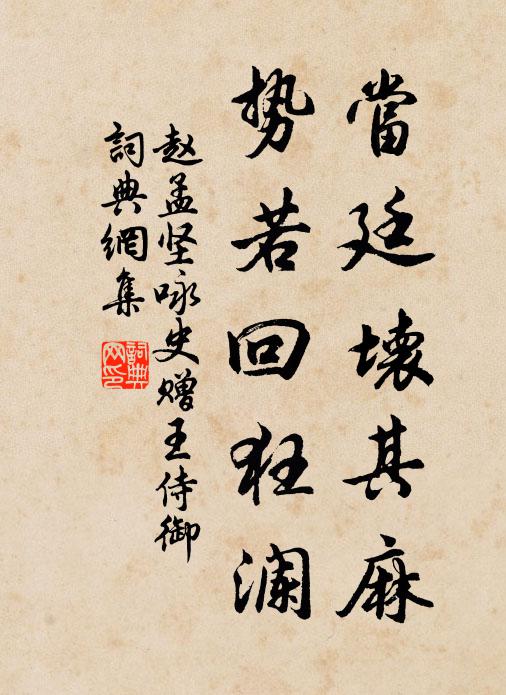 當廷壞其麻
势若回狂澜
赵孟坚咏史赠王侍御
詞典網集
詞典
网印